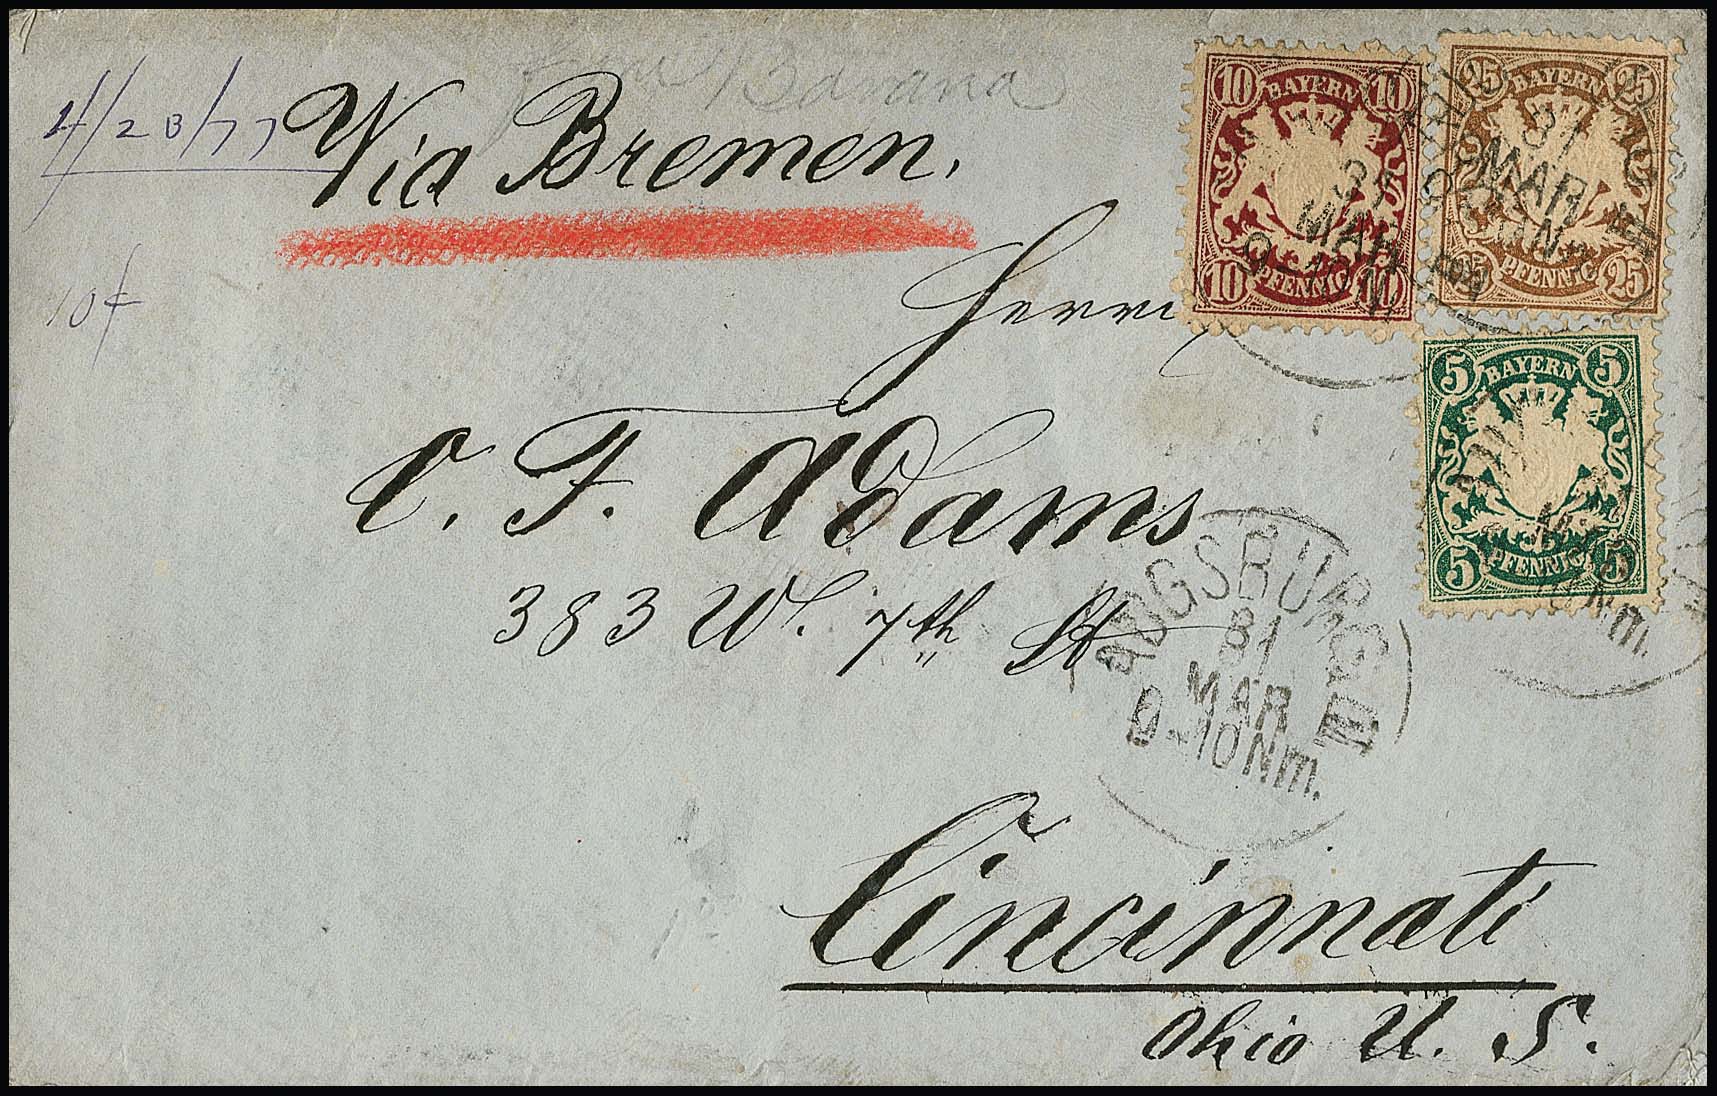 Bavaria
4/20/77
Via Bremen.
10
Herrn
C. F. Adams
383 W. 7th St
Cincinnati
Ohio U. S.
10 10
BAYERN
31
MAR
9-10 N
PFENNIG
10 10
25 25
BAYERN
31
MAR
PFENNIG
25 25
5 5
BAYERN
PFENNIG
5 5
Nm.
AUGSBURG II
31
MAR
9-10 Nm.